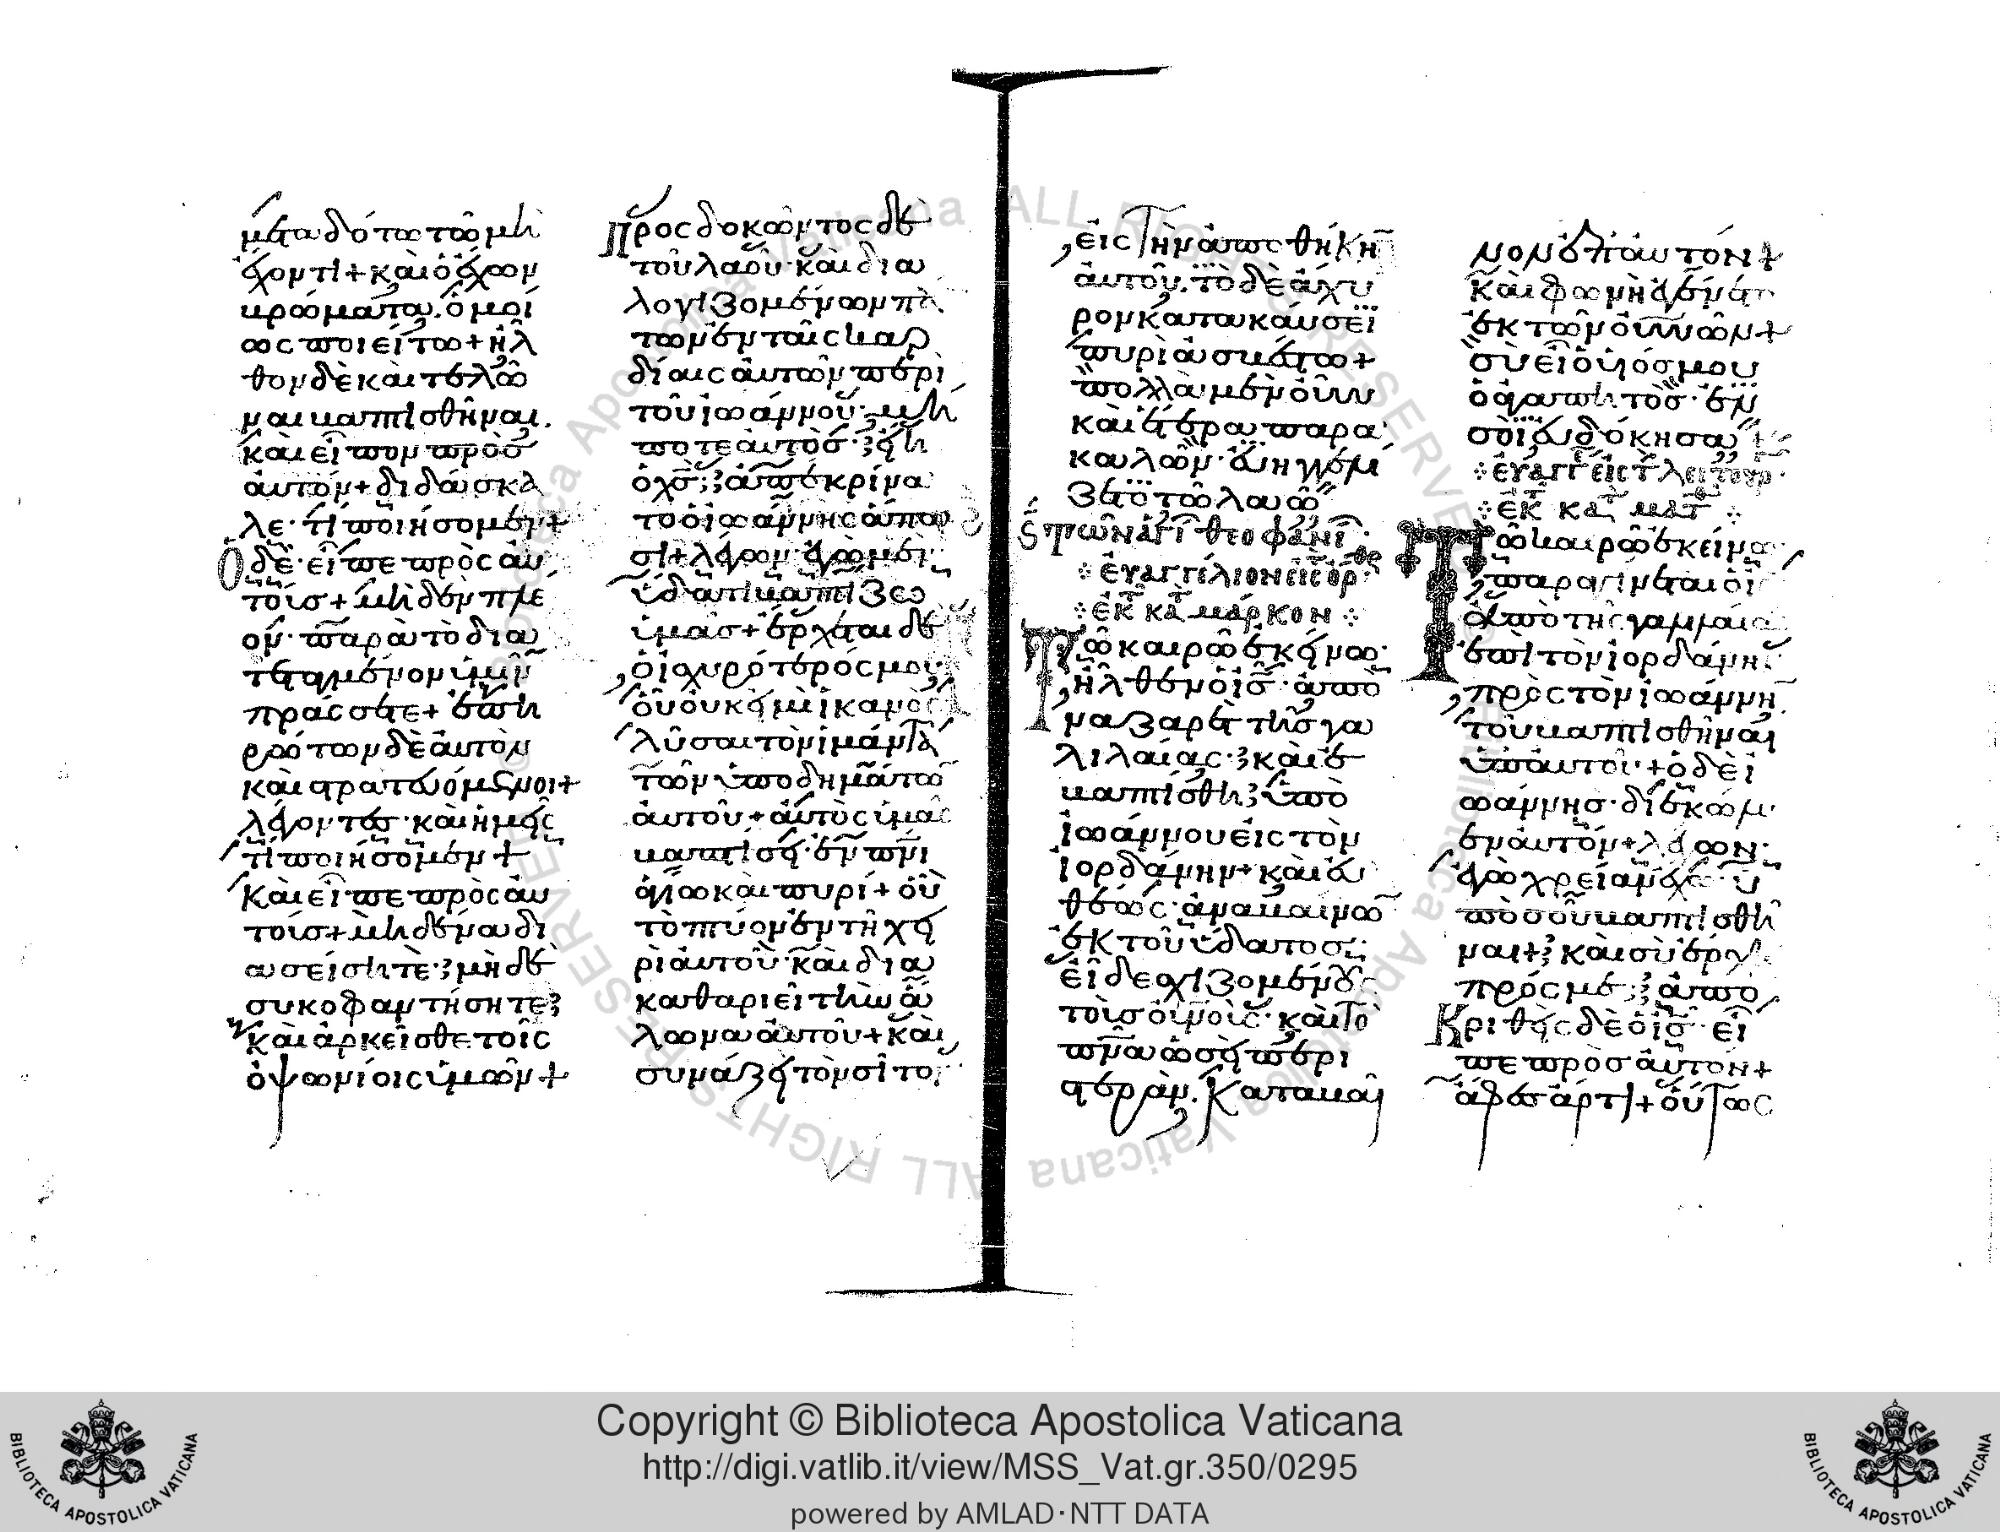 μεταδότω τῶ μὴ
ἔχοντι + καὶ ὁ ἔχων
βρώματα. ὁμοί
ως ποιείτω + ἦλ
θον δὲ καὶ τελῶ
ναι βαπτισθῆναι.
καὶ εἶπον πρὸς
αὐτόν + διδάσκα
λε· τί ποιήσομεν +
Ὁ δὲ· εἶπε πρὸς αὐ
τοίς + μὴδὲν πλέ
ον· παρὰ τὸ δια
τεταγμένον ὑμῖν
πράσσετε + ἐπη
ρώτων δὲ αὐτὸν
καὶ στρατευόμενοι +
λέγοντες· καὶ ἡμεῖς
τί ποιήσομεν +
καὶ εἶπε πρὸς αὐ
τοίς + μὴδένα δι
ασείσητε· μὴδὲ
συκοφαντήσητε
καὶ ἀρκεῖσθε τοῖς
ὀψωνίοις ὑμῶν +
Προσδοκῶντος δὲ
τοῦ λαοῦ· καὶ δια
λογιζομένων πά
των ἐν ταῖς καρ
δίαις αὐτῶν περὶ
τοῦ ἰωάννου· μή
ποτε αὐτὸς· εἴη
ὁ χς· ἀπεκρίνα
το ὁ ἰωάννης ἅπα
σι + λέγων· ἐγὼ μὲν·
ὕδατι βαπτίζω
ὑμᾶς + ἔρχεται δὲ
ὁ ἰσχυρότερός μου
οὗ οὐκ εἰμὶ ἱκανὸς
λῦσαι τὸν ἱμάντα
τῶν ὑποδημάτω
αὐτοῦ + αὐτὸς ὑμᾶς
βαπτίσει· ἐν πνι
ἁγίω καὶ πυρί + οὗ
τὸ πτύον ἐν τῆ χει
ρὶ αὐτοῦ· καὶ δια
καθαριεῖ τὴν ἅ
λωνα αὐτοῦ + καὶ
συνάξει τὸν σῖτο
εἰς τὴν ἀποθήκη
αὐτοῦ. τὸ δὲ ἄχυ
ρον κατακαύσει
πυρὶ ἀσβέστω +
πολλὰ μὲν οὖν
καὶ ἕτερα παρα
καλῶν· εὐηγγελί
ζετο τῶ λαῶ
τῶν ἁγί θεοφανί·
εὐαγγέλιον εἰς ορθ·
ἐκ κατ μάρκον
Τῶ καιρῶ ἐκείνω·
ἦλθεν ὁ ις· ἀπὸ
ναζαρὲτ τῆς γα
λιλαίας· καὶ ἐ
βαπτίσθη ὑπὸ
ἰωάννου εἰς τὸν
ἰορδάνην + καὶ εὐ
θέως· ἀναβαίνω
ἐκ τοῦ ὕδατος·
εἶδε σχιζομένους
τοὺς οὐνοὺς· καὶ τὸ
πνα ὡσεὶ περι
στερὰν. καταβαῖ
νον ἐπ αὐτόν +
καὶ φωνὴ ἐγένετο
ἐκ τῶν οὐνῶν +
σὺ εἶ ὁ υἱός μου
ὁ ἀγαπητὸς· ἐν
σοὶ εὐδόκησα
εὐαγγ εἰς τ λειτουρ·
ἐκ κατ ματ
Τῶ καιρῶ ἐκείνω·
παραγίνεται ὁ ις
ἀπὸ τῆς γαλιλαίας
ἐπὶ τὸν ἰορδάνην·
πρὸς τὸν ἰωάννη
τοῦ βαπτισθῆναι
ὑπ αὐτοῦ· + ὁ δὲ ἰ
ωάννης· διεκώλυ·
εν αὐτόν + λέγων·
ἐγὼ χρείαν ἔχω· ὑ
πὸ σοῦ βαπτισθῆ
ναι + καὶ σὺ ἔρχη
πρός με· ἀπο
Κριθεὶς δὲ ὁ ις· εἶ
πε πρὸς αὐτόν +
ἄφες ἄρτι + οὕτως
Copyright © Biblioteca Apostolica Vaticana
http://digi.vatlib.it/view/MSS_Vat.gr.350/0295
powered by AMLAD·NTT DATA
BIBLIOTECA APOSTOLICA VATICANA
BIBLIOTECA APOSTOLICA VATICANA